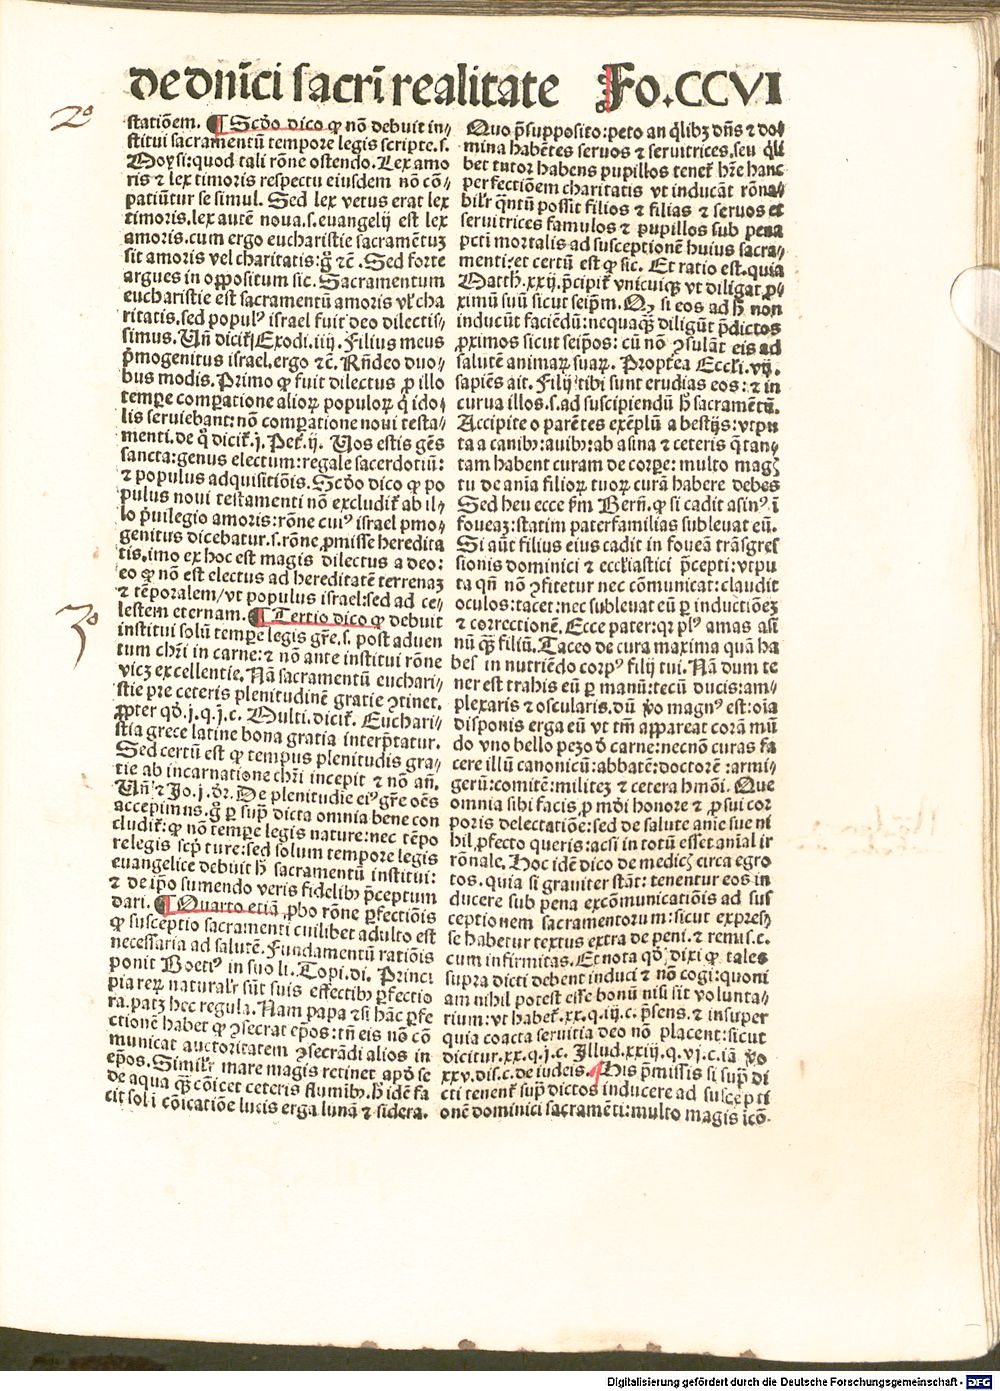 de dn̄ici sacrī realitate Fo.CCVI
2°
statiōem. ¶ Scd̄o dico ꝙ nō debuit in⸗
stitui sacramentū tempore legis scripte.s.
Moysi:quod tali rōne ostendo. Lex amo
ris ⁊ lex timoris respectu eiusdem nō cō⸗
patiūtur se simul. Sed lex vetus erat lex
timoris.lex autē noua.s.euangelij est lex
amoris.cum ergo eucharistie sacramētuꝫ
sit amoris vel charitatis:g̊ ⁊c̄. Sed forte
argues in oppositum sic. Sacramentum
eucharistie est sacramentū amoris vl̓ cha
ritatis.sed populꝰ israel fuit deo dilectis⸗
simus. Vn̄ dicit̓ Exodi.iiij. Filius meus
p̄mogenitus israel.ergo ⁊c̄. Rn̄deo duo⸗
bus modis. Primo ꝙ fuit dilectus ꝓ illo
tempore comꝑatione alioꝝ populoꝝ q̇ ido⸗
lis seruiebant:nō comꝑatione noui testa⸗
menti.de q̊ dicit̓.j. Pet̓.ij. Vos estis gēs
sancta:genus electum:regale sacerdotiū:
⁊ populus adquisitiōis. Scd̄o dico ꝙ po
pulus noui testamenti nō excludit̓ ab il⸗
lo p̄uilegio amoris:rōne cuiꝰ israel pmo⸗
genitus dicebatur.s.rōne ꝓmisse heredita
tis.imo ex hoc est magis dilectus a deo:
eo ꝙ nō est electus ad hereditatē terrenaꝫ
⁊ tēporalem/vt populus israel:sed ad ce⸗
3°
lestem eternam. ¶ Tertio dico ꝙ debuit
institui solū tempore legis gr̄e.s. post aduen
tum chr̄i in carne:⁊ nō ante institui rōne
vicꝫ excellentie. Nā sacramentū euchari⸗
stie pre ceteris plenitudinē gratie ꝯtinet.
ꝓpter qd̄.j.q.j.c. Multi.dicit̓. Euchari⸗
stia grece latine bona gratia interp̄tatur.
Sed certū est ꝙ tempus plenitudis gra⸗
tie ab incarnatione chr̄i incepit ⁊ nō an̄.
Vn̄ ⁊ Jo.j.dr̄. De plenitudie eiꝰ gr̄e oēs
accepimus.g̊ ꝑ sup̄ dicta omnia bene con
cludit̓:ꝙ nō tempore legis nature:nec tēpo
re legis scp̄ture:sed solum tempore legis
euangelice debuit h̄ sacramentū institui:
⁊ de ip̄o sumendo veris fidelibꝰ p̄ceptum
dari. ¶ Quarto etiā ꝓbo rōne ꝑfectiōis
ꝙ susceptio sacramenti cuilibet adulto est
necessaria ad salutē. Fundamentū ratiōis
ponit Boetiꝰ in suo li. Topi.di. Princi
pia reꝝ naturalr̄ sūt suis effectibꝰ ꝑfectio
ra.patꝫ hec regula. Nam papa ⁊si hāc ꝑfe
ctionē habet ꝙ ꝯsecrat ep̄os:tn̄ eis nō cō
municat auctoritatem ꝯsecrādi alios in
ep̄os. Similr̄ mare magis retinet apd̄ se
de aqua qꝫ cōicet ceteris fluminibꝰ.h̄ idē fa
cit sol ī cōicatiōe lucis erga lunā ⁊ sidera.
Quo p̄supposito:peto an q̄libꝫ dn̄s ⁊ do⸗
mina habētes seruos ⁊ seruitrices.seu q̄li
bet tutor habens pupillos tenet̓ hr̄e hanc
perfectiōem charitatis vt inducāt rōna⸗
bilr̄ q̄ntū possūt filios ⁊ filias ⁊ seruos et
seruitrices famulos ⁊ pupillos sub pena
pcti mortalis ad susceptionē huius sacra⸗
menti:et certū est ꝙ sic. Et ratio est.quia
Matth.xxij.p̄cipit̓ vnicuiqꝫ vt diligat ꝓ⸗
ximū suū sicut seip̄m. Qꝫ si eos ad h̄ non
inducūt faciēdū:nequaqꝫ diligūt p̄dictos
ꝓximos sicut seip̄os: cū nō ꝯsulāt eis ad
salutē animaꝝ suaꝝ. Propt̄ea Eccl̓i.vij.
sapiēs ait. Filij tibi sunt erudias eos:⁊ in
curua illos.s.ad suscipiendū h̄ sacramētū.
Accipite o parētes exēplū a bestijs:vtpu
ta a canibꝰ:auibꝰ:ab asina ⁊ ceteris q̄ tan⸗
tam habent curam de corꝑe: multo magꝭ
tu de anīa filioꝝ tuoꝝ curā habere debes
Sed heu ecce fm̄ Bern̄.ꝙ si cadit asinꝰ ī
foueaꝫ:statim paterfamilias subleuat eū.
Si aūt filius eius cadit in foueā trāsgres
sionis dominici ⁊ eccl̓iastici p̄cepti:vtpu
ta qn̄ nō ꝯfitetur nec cōmunicat:claudit
oculos:tacet:nec subleuat eū ꝑ inductiōeꝫ
⁊ correctionē. Ecce pater:qꝛ plꝰ amas asi
nū qꝫ filiū. Taceo de cura maxima quā ha
bes in nutriēdo corpꝰ filij tui. Nā dum te
ner est trahis eū ꝑ manū:tecū ducis:am⸗
plexaris ⁊ oscularis.dū v̊o magnꝰ est:oīa
disponis erga eū vt tm̄ appareat corā mū
do vno bello pezo d̄ carne:necnō curas fa
cere illū canonicū:abbatē:doctorē :armi⸗
gerū:comitē:militeꝫ ⁊ cetera hmōi. Que
omnia sibi facis ꝓ mūdi honore ⁊ ꝓ sui cor
poris delectatiōe:sed de salute anīe sue ni
hil ꝓfecto queris:acsi in totū esset anīal ir
rōnale. Hoc idē dico de medicꝭ circa egro
tos. quia si grauiter stāt: tenentur eos in
ducere sub pena excōmunicatiōis ad sus
ceptionem sacramentorum:sicut expressꝫ
se habetur textus extra de peni.⁊ remis.c.
cum infirmitas. Et nota qd̄ dixi ꝙ tales
supra dicti debent induci ⁊ nō cogi:quoni
am nihil potest esse bonū nisi sit volunta⸗
rium:vt habet̓.xx.q.iij.c. p̄sens.⁊ insuper
quia coacta seruitia deo nō placent:sicut
dicitur.xx.q.j.c. Illud.xxiij.q.vj.c.iā v̊o
xxv.dis.c.de iudeis. His p̄missis si sup̄ di
cti tenent̓ sup̄ dictos inducere ad suscepti
onē dominici sacramēti:multo magis icō.
Digitalisierung gefördert durch die Deutsche Forschungsgemeinschaft - DFG